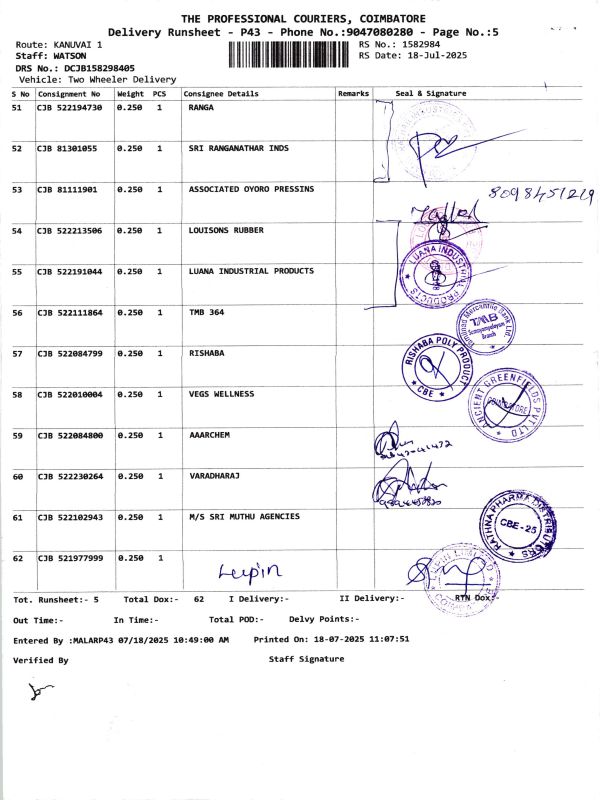 THE PROFESSIONAL COURIERS, COIMBATORE
Delivery Runsheet - P43 - Phone No.:9047080280 - Page No.:5
Route: KANUVAI 1
RS No.: 1582984
Staff: WATSON
RS Date: 18-Jul-2025
DRS No.: DCJB158298405
Vehicle: Two Wheeler Delivery
S No Consignment No Weight PCS Consignee Details Remarks Seal & Signature
51 CJB 522194730 0.250 1 RANGA
52 CJB 81301055 0.250 1 SRI RANGANATHAR INDS
53 CJB 81111901 0.250 1 ASSOCIATED OYORO PRESSINS
8098451219
54 CJB 522213506 0.250 1 LOUISONS RUBBER
55 CJB 522191044 0.250 1 LUANA INDUSTRIAL PRODUCTS
LUANA INDUSTRIAL PRODUCTS
56 CJB 522111864 0.250 1 TMB 364
Tamilnad Mercantile Bank Ltd.
TMB
Branch
57 CJB 522084799 0.250 1 RISHABA
RISHABA POLY PRODUCT
CBE
58 CJB 522010004 0.250 1 VEGS WELLNESS
ANCIENT GREENFIELDS PVT LTD
COIMBATORE
59 CJB 522084800 0.250 1 AAARCHEM
60 CJB 522230264 0.250 1 VARADHARAJ
61 CJB 522102943 0.250 1 M/S SRI MUTHU AGENCIES
RATHNA PHARMA DISTRIBUTORS
CBE-25
62 CJB 521977999 0.250 1
Lupin
Tot. Runsheet:- 5 Total Dox:- 62 I Delivery:- II Delivery:- RTN Dox:
Out Time:- In Time:- Total POD:- Delvy Points:-
Entered By :MALARP43 07/18/2025 10:49:00 AM Printed On: 18-07-2025 11:07:51
Verified By Staff Signature